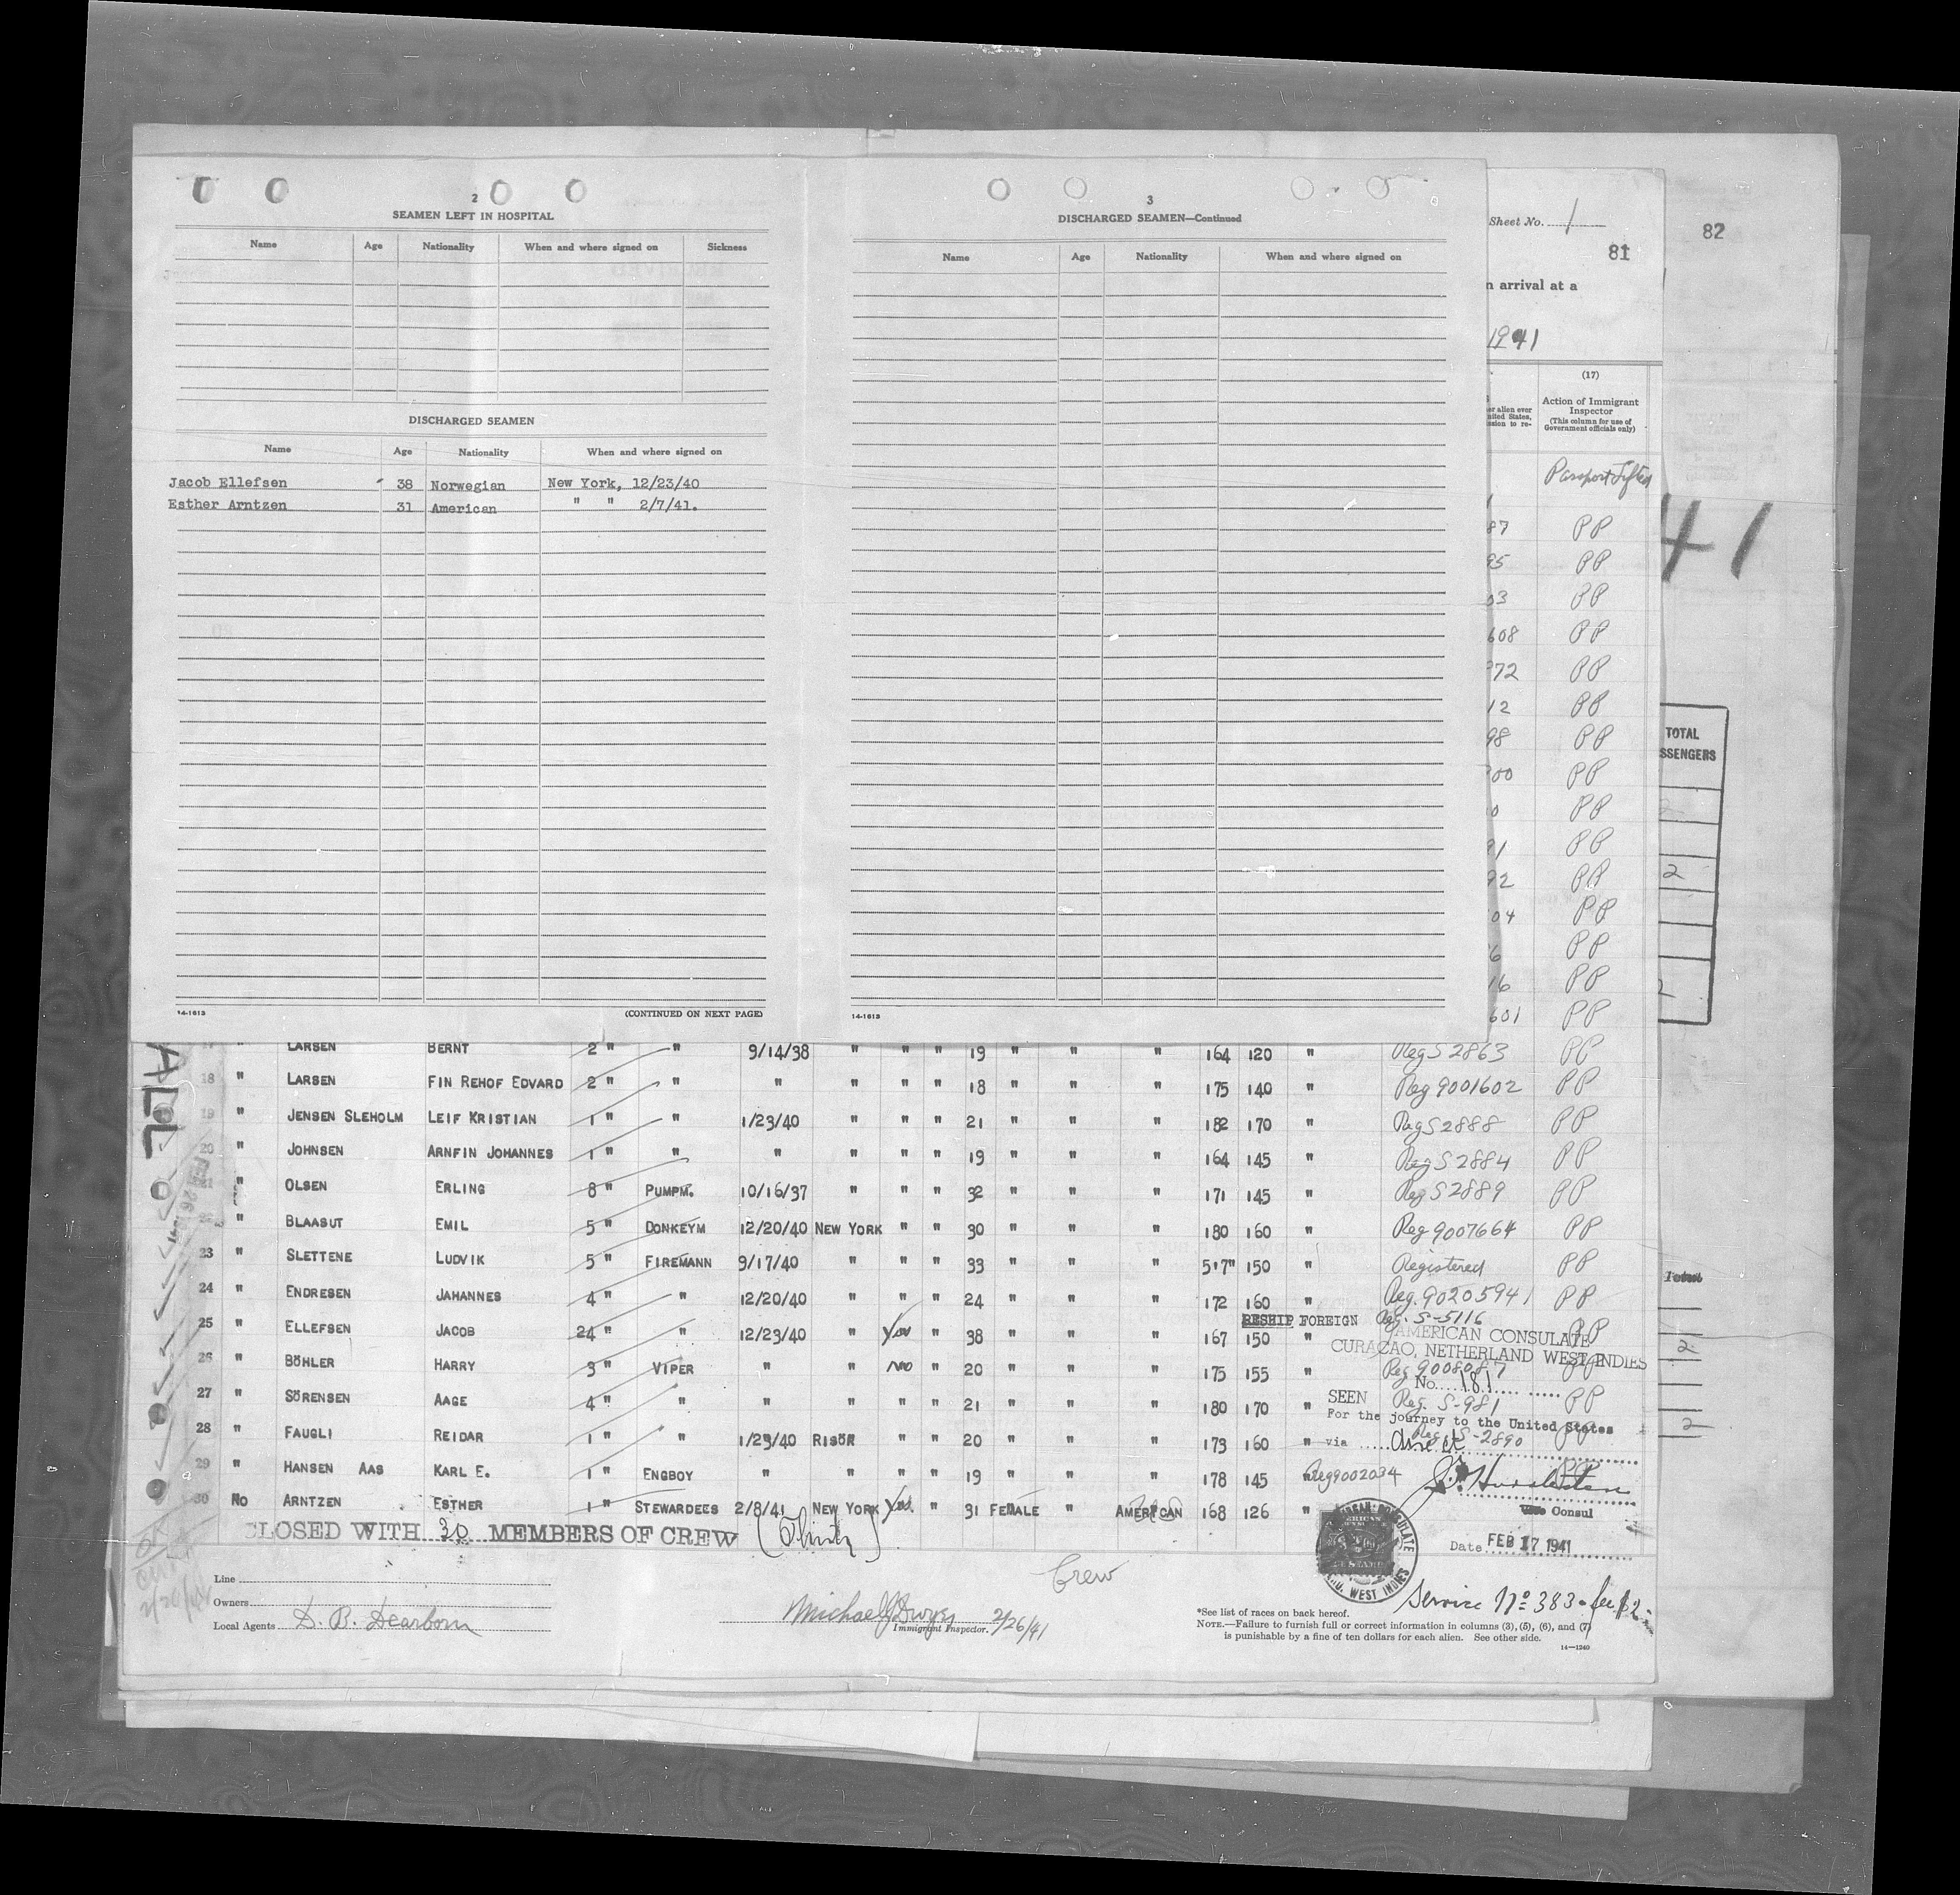 2
SEAMEN LEFT IN HOSPITAL
Name Age Nationality When and where signed on Sickness
DISCHARGED SEAMEN
Name Age Nationality When and where signed on
Jacob Ellefsen 38 Norwegian New York, 12/23/40
Esther Arntzen 31 American " " 2/7/41.
14-1613 (CONTINUED ON NEXT PAGE)
3
DISCHARGED SEAMEN—Continued
Name Age Nationality When and where signed on
14-1613
Sheet No. 1
81
82
n arrival at a
1941
(17)
er alien ever
nited States,
ssion to re-
Action of Immigrant
Inspector
(This column for use of
Government officials only)
Passport Lifted
41
87 PP
95 PP
03 PP
608 PP
972 PP
12 PP
98 PP
700 PP
0 PP
91 PP
92 PP
04 PP
6 PP
16 PP
601 PP
TOTAL
SSENGERS
2
2
ALL
17 " LARSEN BERNT 2 " " 9/14/38 " " " 19 " " " 164 120 " Reg S 2863 PP
18 " LARSEN FIN REHOF EDVARD 2 " " " " " " 18 " " " 175 140 " Reg 9001602 PP
19 " JENSEN SLEHOLM LEIF KRISTIAN 1 " " 1/23/40 " " " 21 " " " 182 170 " Reg S 2888 PP
20 " JOHNSEN ARNFIN JOHANNES 1 " " " " " " 19 " " " 164 145 " Reg S 2884 PP
21 " OLSEN ERLING 8 " PUMPM. 10/16/37 " " " 32 " " " 171 145 " Reg S 2889 PP
22 " BLAASUT EMIL 5 " DONKEYM 12/20/40 NEW YORK " " 30 " " " 180 160 " Reg 9007664 PP
23 " SLETTENE LUDVIK 5 " FIREMANN 9/17/40 " " " 33 " " " 5'7" 150 " Registered PP
24 " ENDRESEN JAHANNES 4 " " 12/20/40 " " " 24 " " " 172 160 " Reg. 90205941 PP
RESHIP FOREIGN
25 " ELLEFSEN JACOB 24 " " 12/23/40 " Yes " 38 " " " 167 150 " Reg. S-5116 PP
AMERICAN CONSULATE
CURAÇAO, NETHERLAND WEST INDIES
26 " BÖHLER HARRY 3 " VIPER " " No " 20 " " " 175 155 Reg 9008087 PP
No. 181
27 " SÖRENSEN AAGE 4 " " " " " " 21 " " " 180 170 " Reg. S-981 PP
SEEN
For the journey to the United States
28 " FAUGLI REIDAR 1 " " 1/23/40 RISÖR " " 20 " " " 173 160 " Reg. S-2890
via direct
29 " HANSEN AAS KARL E. 1 " ENGBOY " " " " 19 " " " 178 145 " Reg 9002034 PP
30 No ARNTZEN ESTHER 1 " STEWARDEES 2/8/41 NEW YORK Yes " 31 FEMALE " AMERICAN 168 126 "
Consul
CLOSED WITH 30 MEMBERS OF CREW
Date FEB 17 1941
CONSULATE
WEST INDIES
Service No 383 - fee $2.
Line
Owners
Local Agents D. B. Dearborn
Crew
Michael J Dwyer 2/26/41
Immigrant Inspector.
*See list of races on back hereof.
NOTE.—Failure to furnish full or correct information in columns (3), (5), (6), and (7)
is punishable by a fine of ten dollars for each alien. See other side.
14—1240
2
2